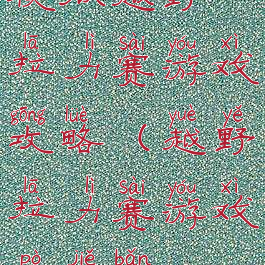 lā lì sài yóu xì
拉力赛游戏
gōng lüè yuè yě
攻略（越野
lā lì sài yóu xì
拉力赛游戏
pò jiě bǎn